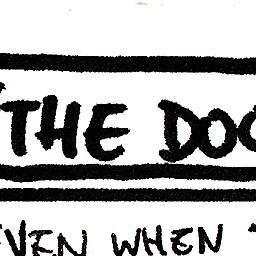 "THE DOC
EVEN WHEN "